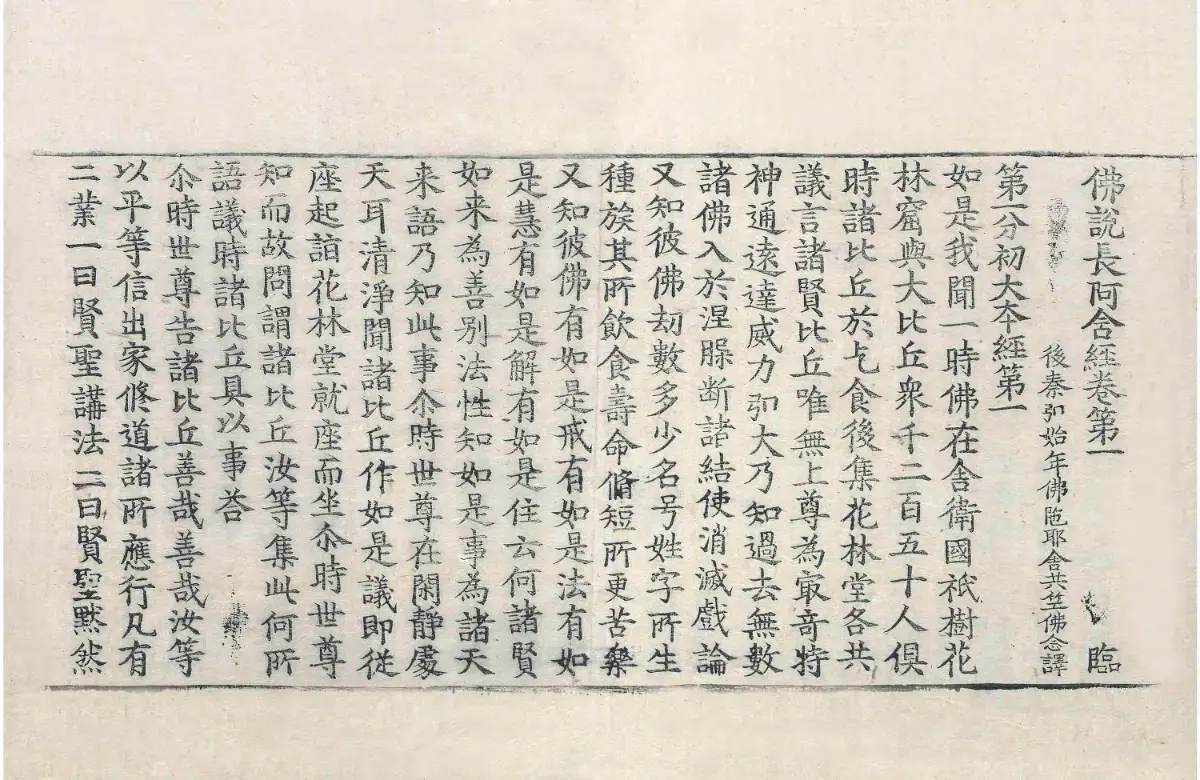 佛說長阿含經卷第一 臨
後秦弘始年佛陁耶舍共竺佛念譯
第一分初大本經第一
如是我聞一時佛在舍衛國祇樹花
林窟與大比丘衆千二百五十人俱
時諸比丘於乞食後集花林堂各共
議言諸賢比丘唯無上尊為㝡竒特
神通遠達威力弘大乃知過去無數
諸佛入於涅槃斷諸結使消滅戲論
又知彼佛劫數多少名号姓字所生
種族其所飲食壽命脩短所更苦樂
又知彼佛有如是戒有如是法有如
是慧有如是解有如是住云何諸賢
如来為善別法性知如是事為諸天
来語乃知此事尒時世尊在閑靜處
天耳清淨聞諸比丘作如是議即從
座起詣花林堂就座而坐尒時世尊
知而故問謂諸比丘汝等集此何所
語議時諸比丘具以事荅
尒時世尊告諸比丘善哉善哉汝等
以平等信出家脩道諸所應行凡有
二業一曰賢聖講法二曰賢聖默然